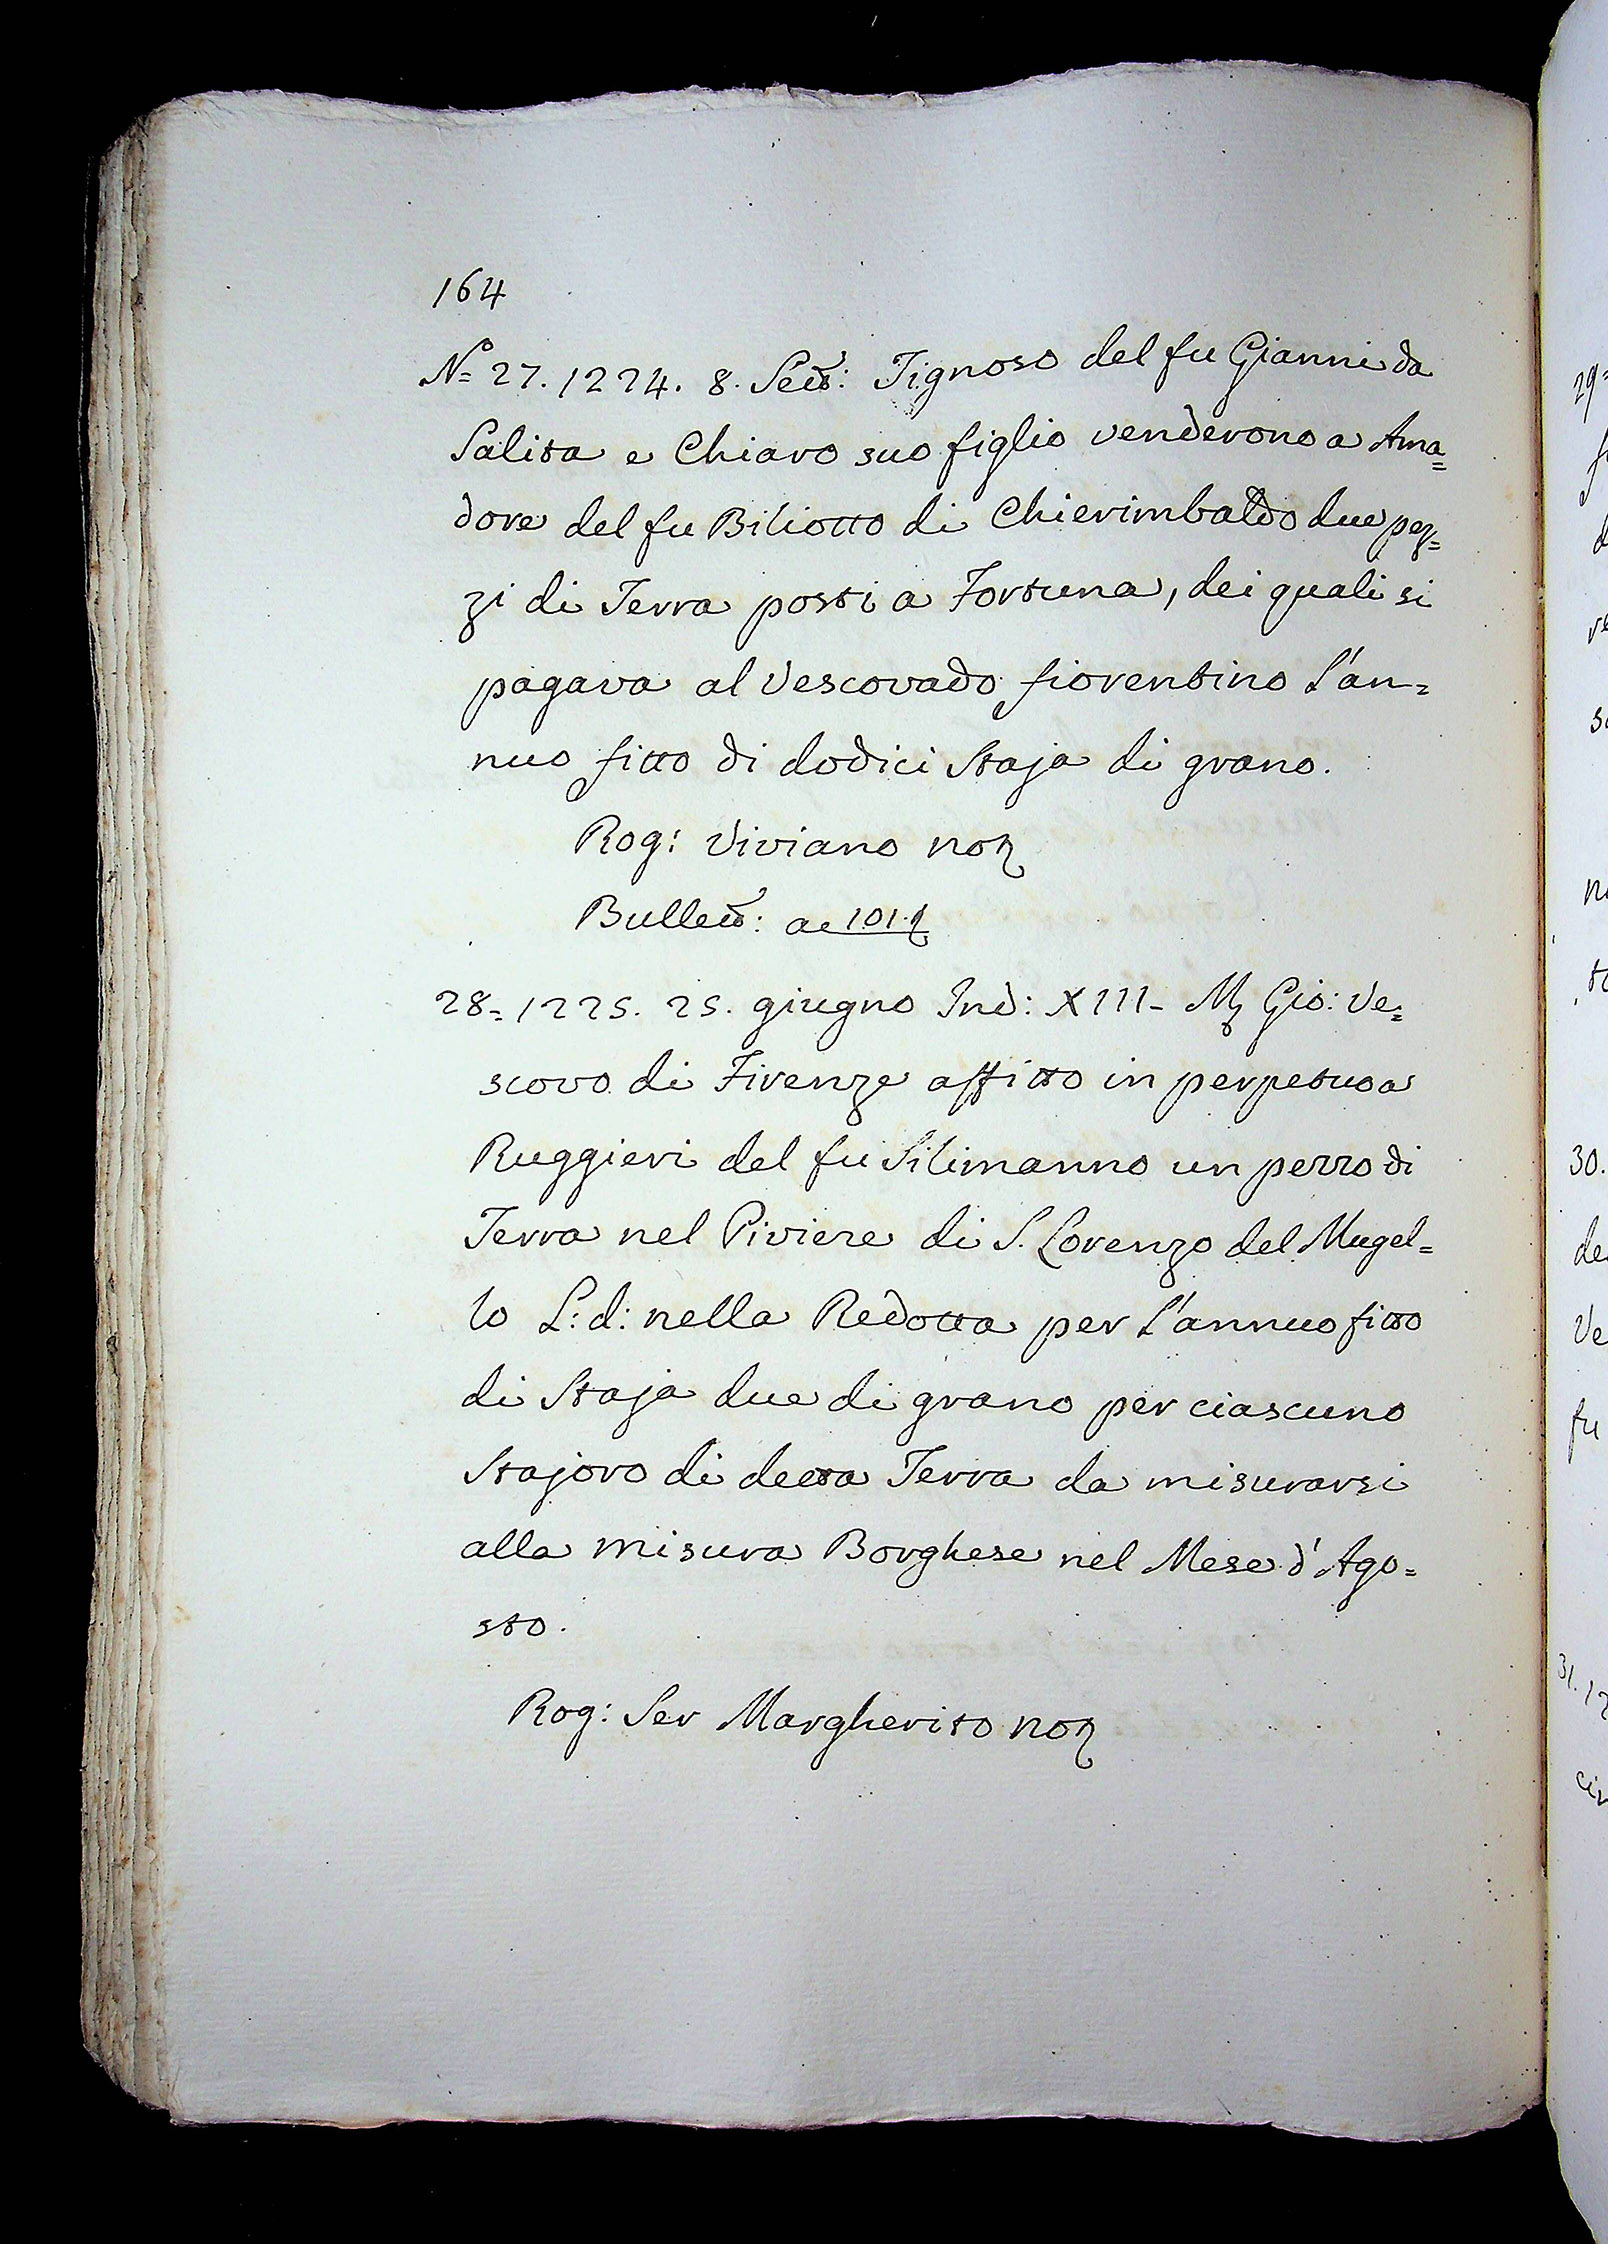 164
Nº= 27. 1224. 8. Sett: Tignoso del fu Gianni da
Salita e Chiaro suo figlio venderono a Ama=
dore del fu Biliotto di Chierimbaldo due pez=
zi di Terra posti a Fortuna, dei quali si
pagava al Vescovado fiorentino l'an=
nuo fitto di dodici Staja di grano.
Rog: Viviano not
Bullett: a c 101.
28= 1225. 25. giugno Ind: XIII- M Gio: Ve=
scovo di Firenze affitto in perpetuo a
Ruggieri del fu Silimanno un pezzo di
Terra nel Piviere di S. Lorenzo del Mugel=
lo L: d: nella Redotta per l'annuo fitto
di Staja due di grano per ciascuno
Stajoro di detta Terra da misurarsi
alla misura Borghese nel Mese d'Ago=
sto.
Rog: Ser Margherito not
29=
30.
de
Ve
fu
31. 12